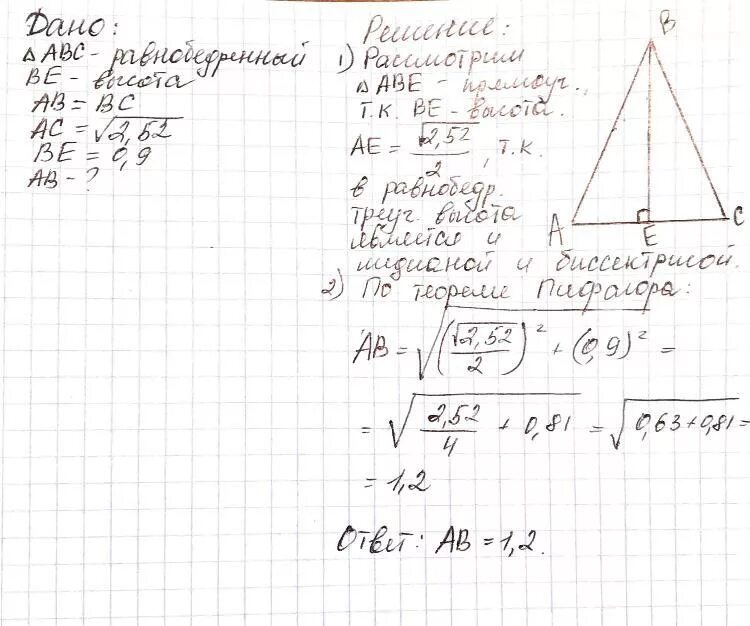 Дано:
△ ABC - равнобедренный
BE - высота
AB = BC
AC = √2,52
BE = 0,9
AB - ?
Решение:
1) Рассмотрим
△ ABE - прямоуг.,
т.к. BE - высота.
AE = √2,52/2, т.к.
в равнобедр.
треуг. высота
является и
мидианой и биссектрисой.
2) По теореме Пифагора:
AB = √((√2,52/2)² + (0,9)²) =
= √(2,52/4 + 0,81) = √(0,63+0,81) =
= 1,2
Ответ: AB = 1,2.
B
A
E
C